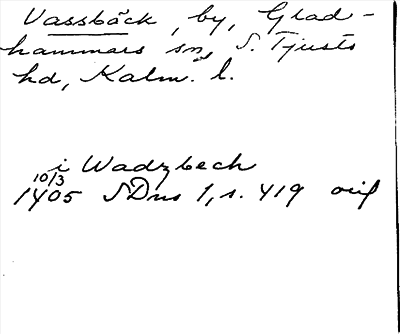 Vassbäck, by, Glad-
hammars sn, S. Tjusts
hd, Kalm. l.
i Wadzbech
10/3
1405 SDns 1, s. 419 orig